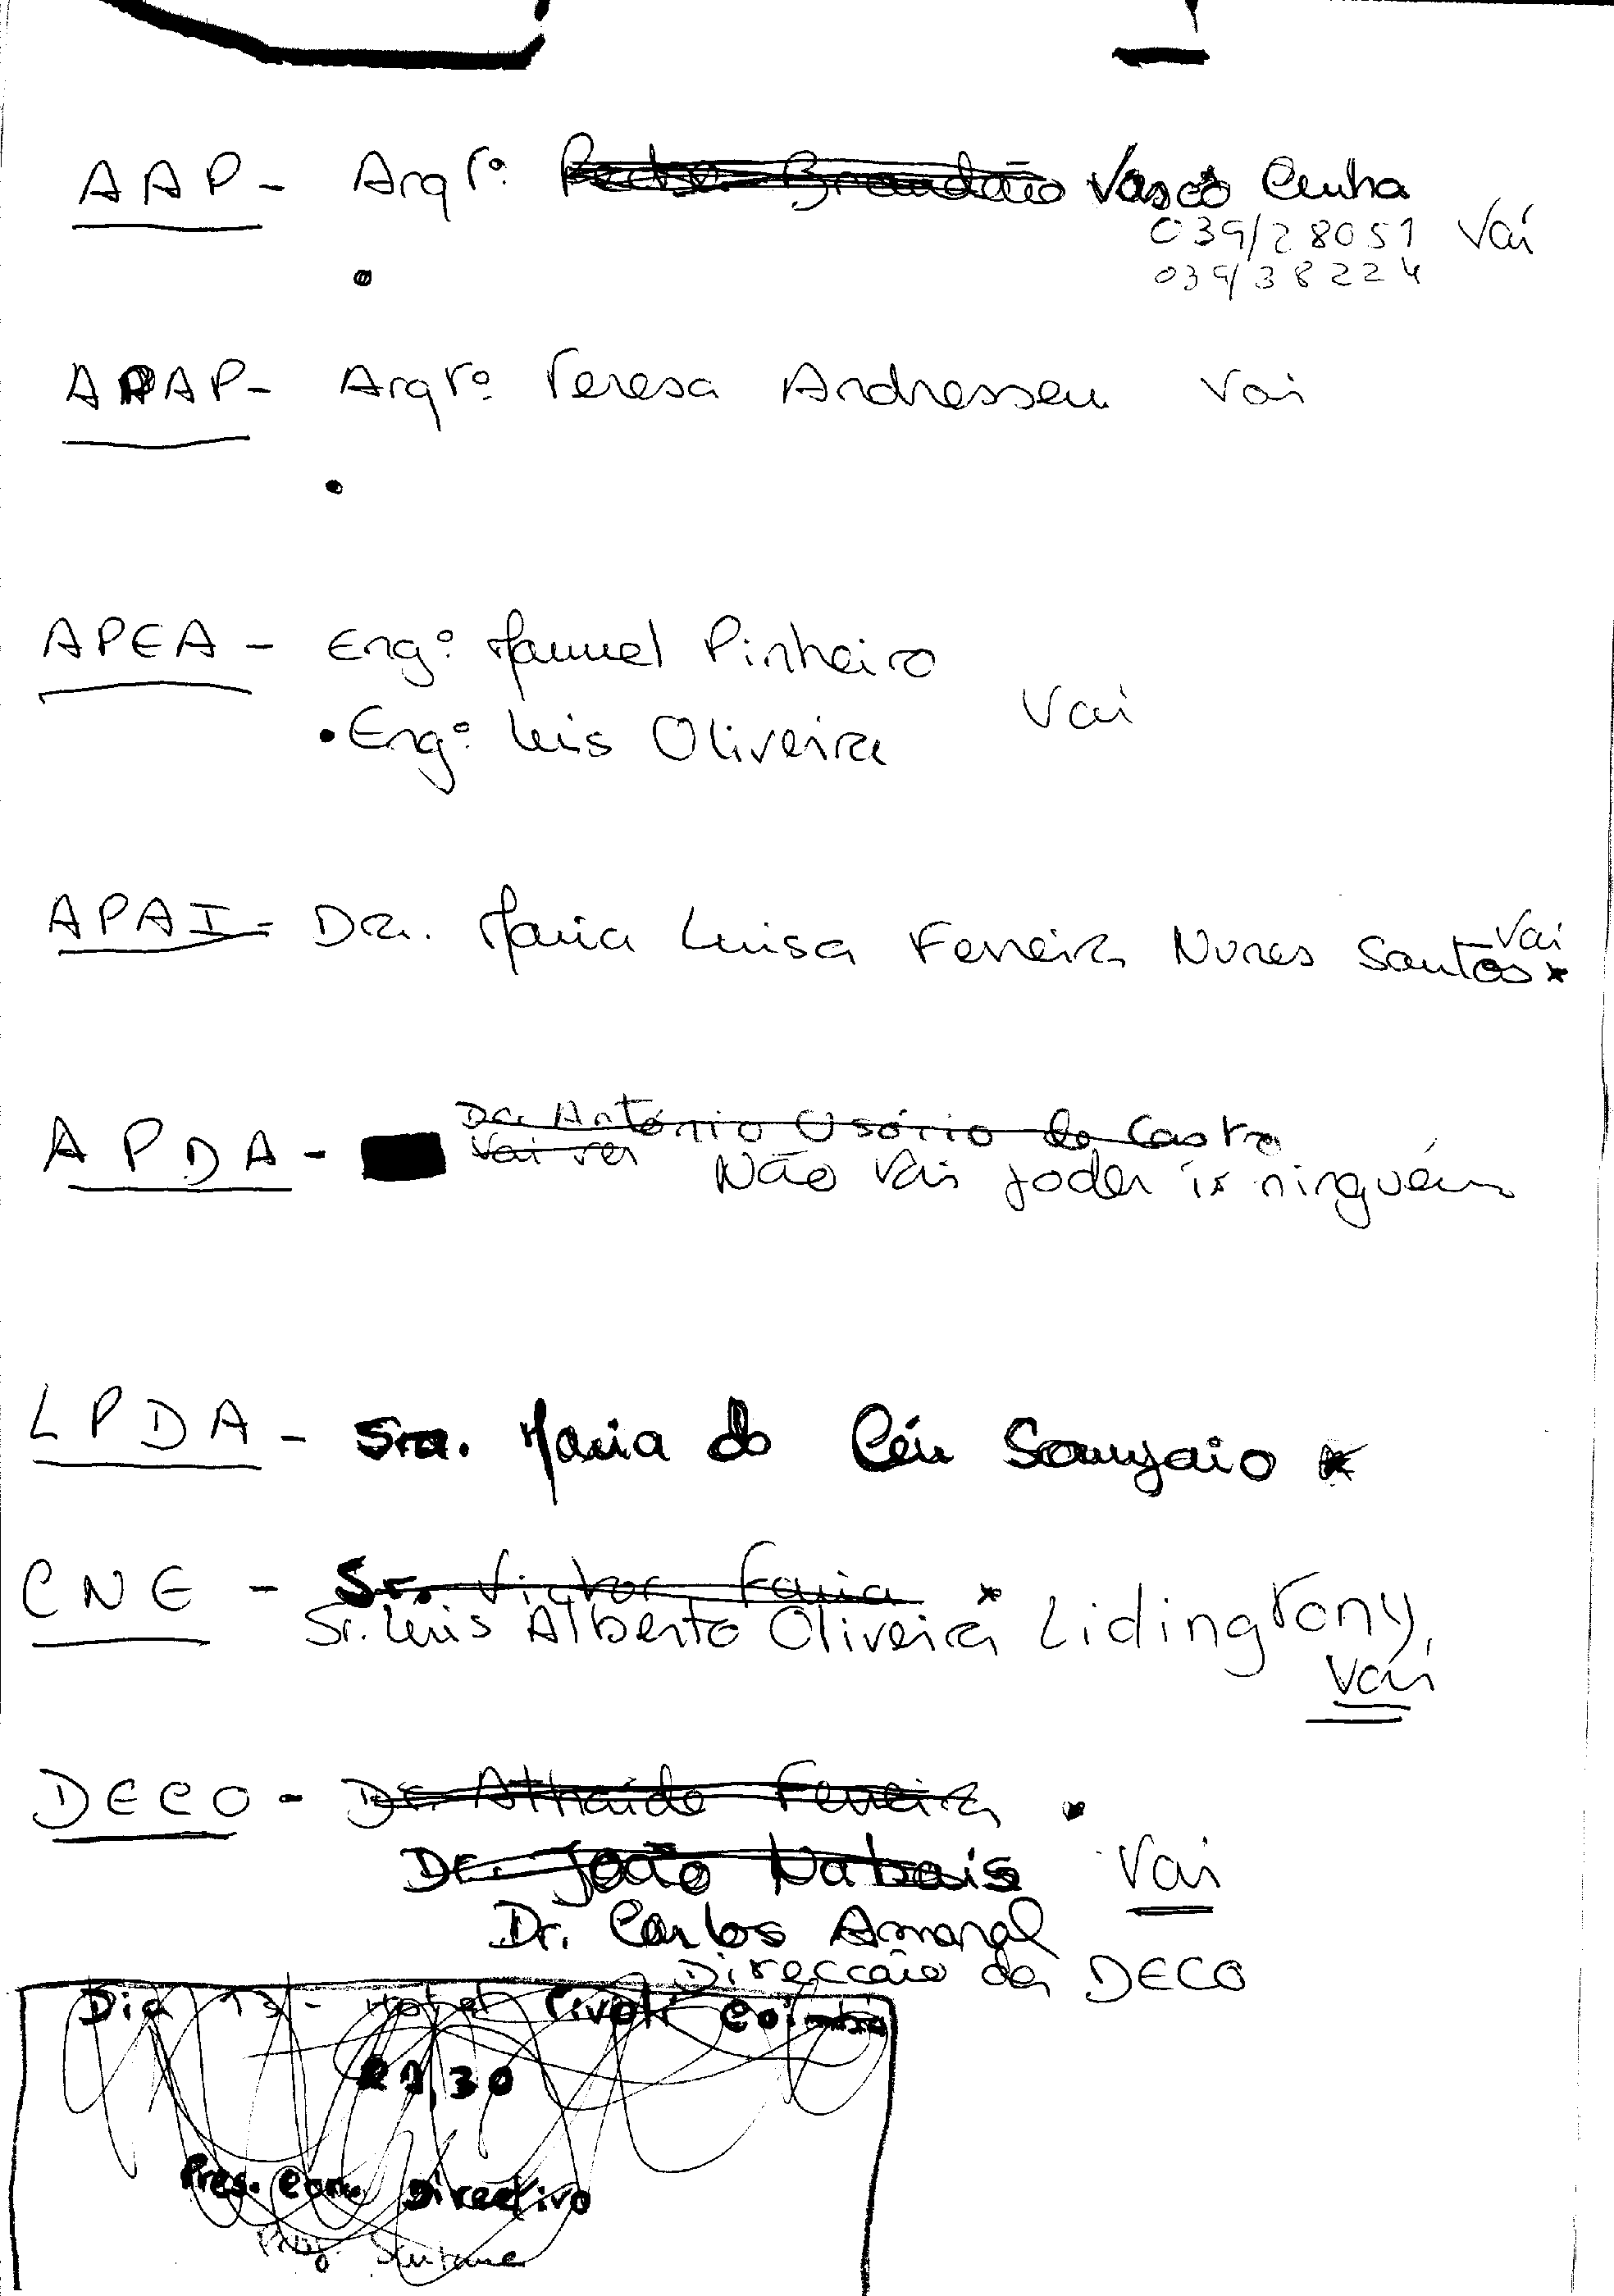 AAP - Arqtº. Pedro Brandão Vasco Cunha
039/28051 Vai
039/38224
APAP - Arqtº Teresa Andressen Vai
APEA - Engº. Manuel Pinheiro
• Engº. Luis Oliveira Vai
APAI - Dra. Maria Luisa Ferreira Nunes Santos * Vai
APDA - Dr. António Osório de Castro
Vai ver Não Vai poder ir ninguém
LPDA - Sra. Maria do Céu Sampaio *
CNE - Sr. Victor Faria *
Sr. Luis Alberto Oliveira Lidingtony,
Vai
DECO - Dr. Athaíde Ferreira
Dr. João Nabais Vai
Dr. Carlos Amaral
Direcção da DECO
Dia 13 - Hotel Tivoli Coimbra
21,30
Pres. Cons. Directivo
Prof.